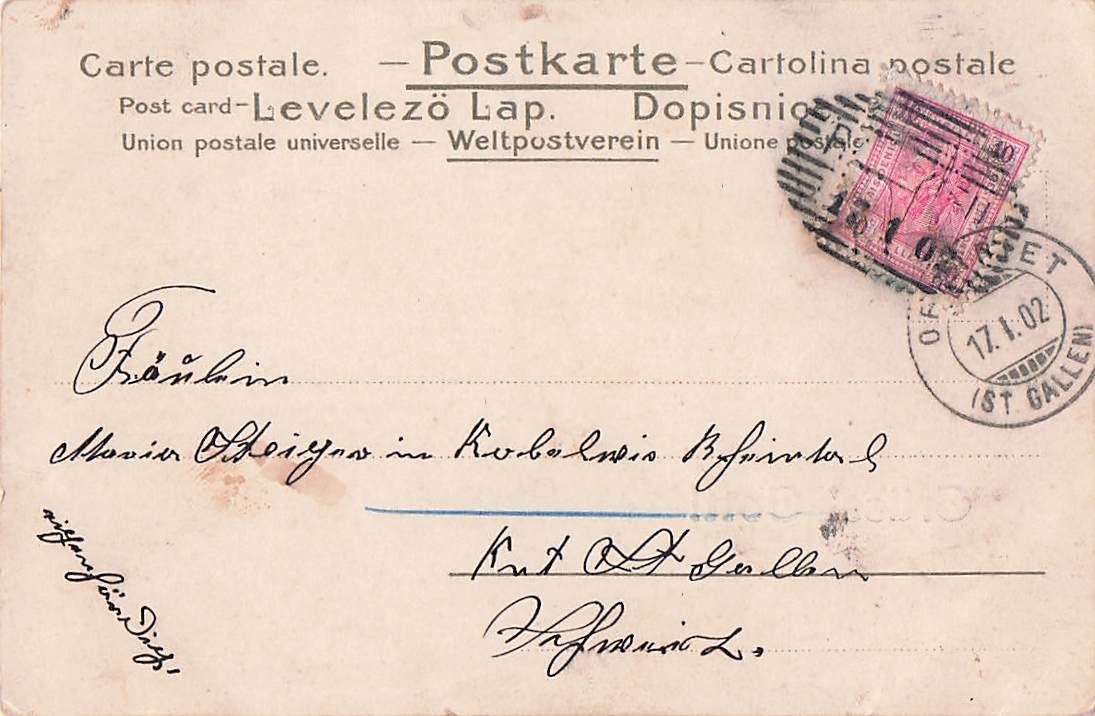 Carte postale. — Postkarte — Cartolina postale
Post card - Levelező Lap. Dopisnic
Union postale universelle — Weltpostverein — Unione postale
10
17 1 02
OB RIET
17.I.02
(ST. GALLEN)
Fräulein
Maria Steiger in Kobelwis Rheintal
Knt St Gallen
Schweiz.